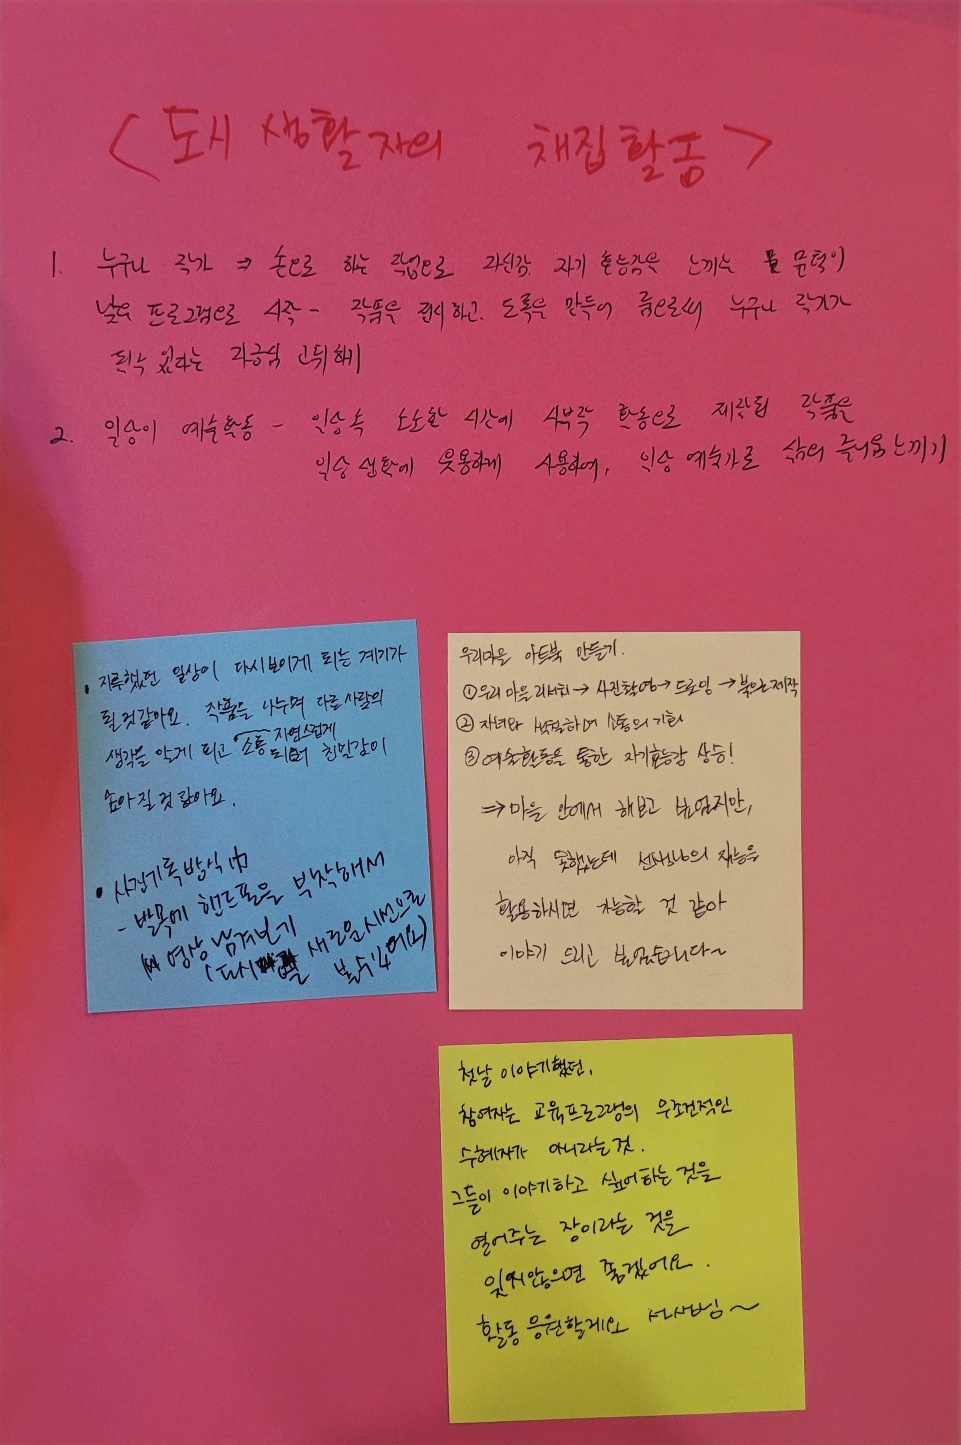 <도시 생활자의 채집활동>
1. 누구나 작가 ⇒ 손으로 하는 작업으로 자신감, 자기 효능감을 느끼는 문턱이
낮은 프로그램으로 시작 - 작품을 전시하고, 도록을 만들어 줌으로써 누구나 작가가
될 수 있다는 자긍심 고취하기
2. 일상이 예술활동 - 일상 속 소소한 시간에 사부작 활동으로 제작된 작품을
일상 생활에 유용하게 사용하여, 일상 예술가로 삶의 즐거움 느끼기
• 지루했던 일상이 다시보이게 되는 계기가
될 것 같아요. 작품을 나누며 다른 사람의
생각을 알게 되고 소통 자연스럽게
되어 친밀감이
높아질 것 같아요.
• 사진기록방식 中
- 발목에 핸드폰을 부착해서
영상 남겨보기
(다시 새로운 시선으로
볼 수 있어요)
우리마을 아트북 만들기.
① 우리 마을 리서치 → 사진촬영 → 드로잉 → 북으로 제작
② 자녀와 하며 소통의 기회
③ 예술활동을 통한 자기효능감 상승!
⇒ 마을 안에서 해보고 싶었지만,
아직 못했는데 선생님의 재능을
활용하시면 가능할 것 같아
이야기 드리고 싶었습니다~
첫날 이야기했던,
참여자는 교육프로그램의 무조건적인
수혜자가 아니라는 것.
그들이 이야기하고 싶어하는 것을
열어주는 장이라는 것을
잊지않으면 좋겠어요.
활동 응원할게요 선생님~